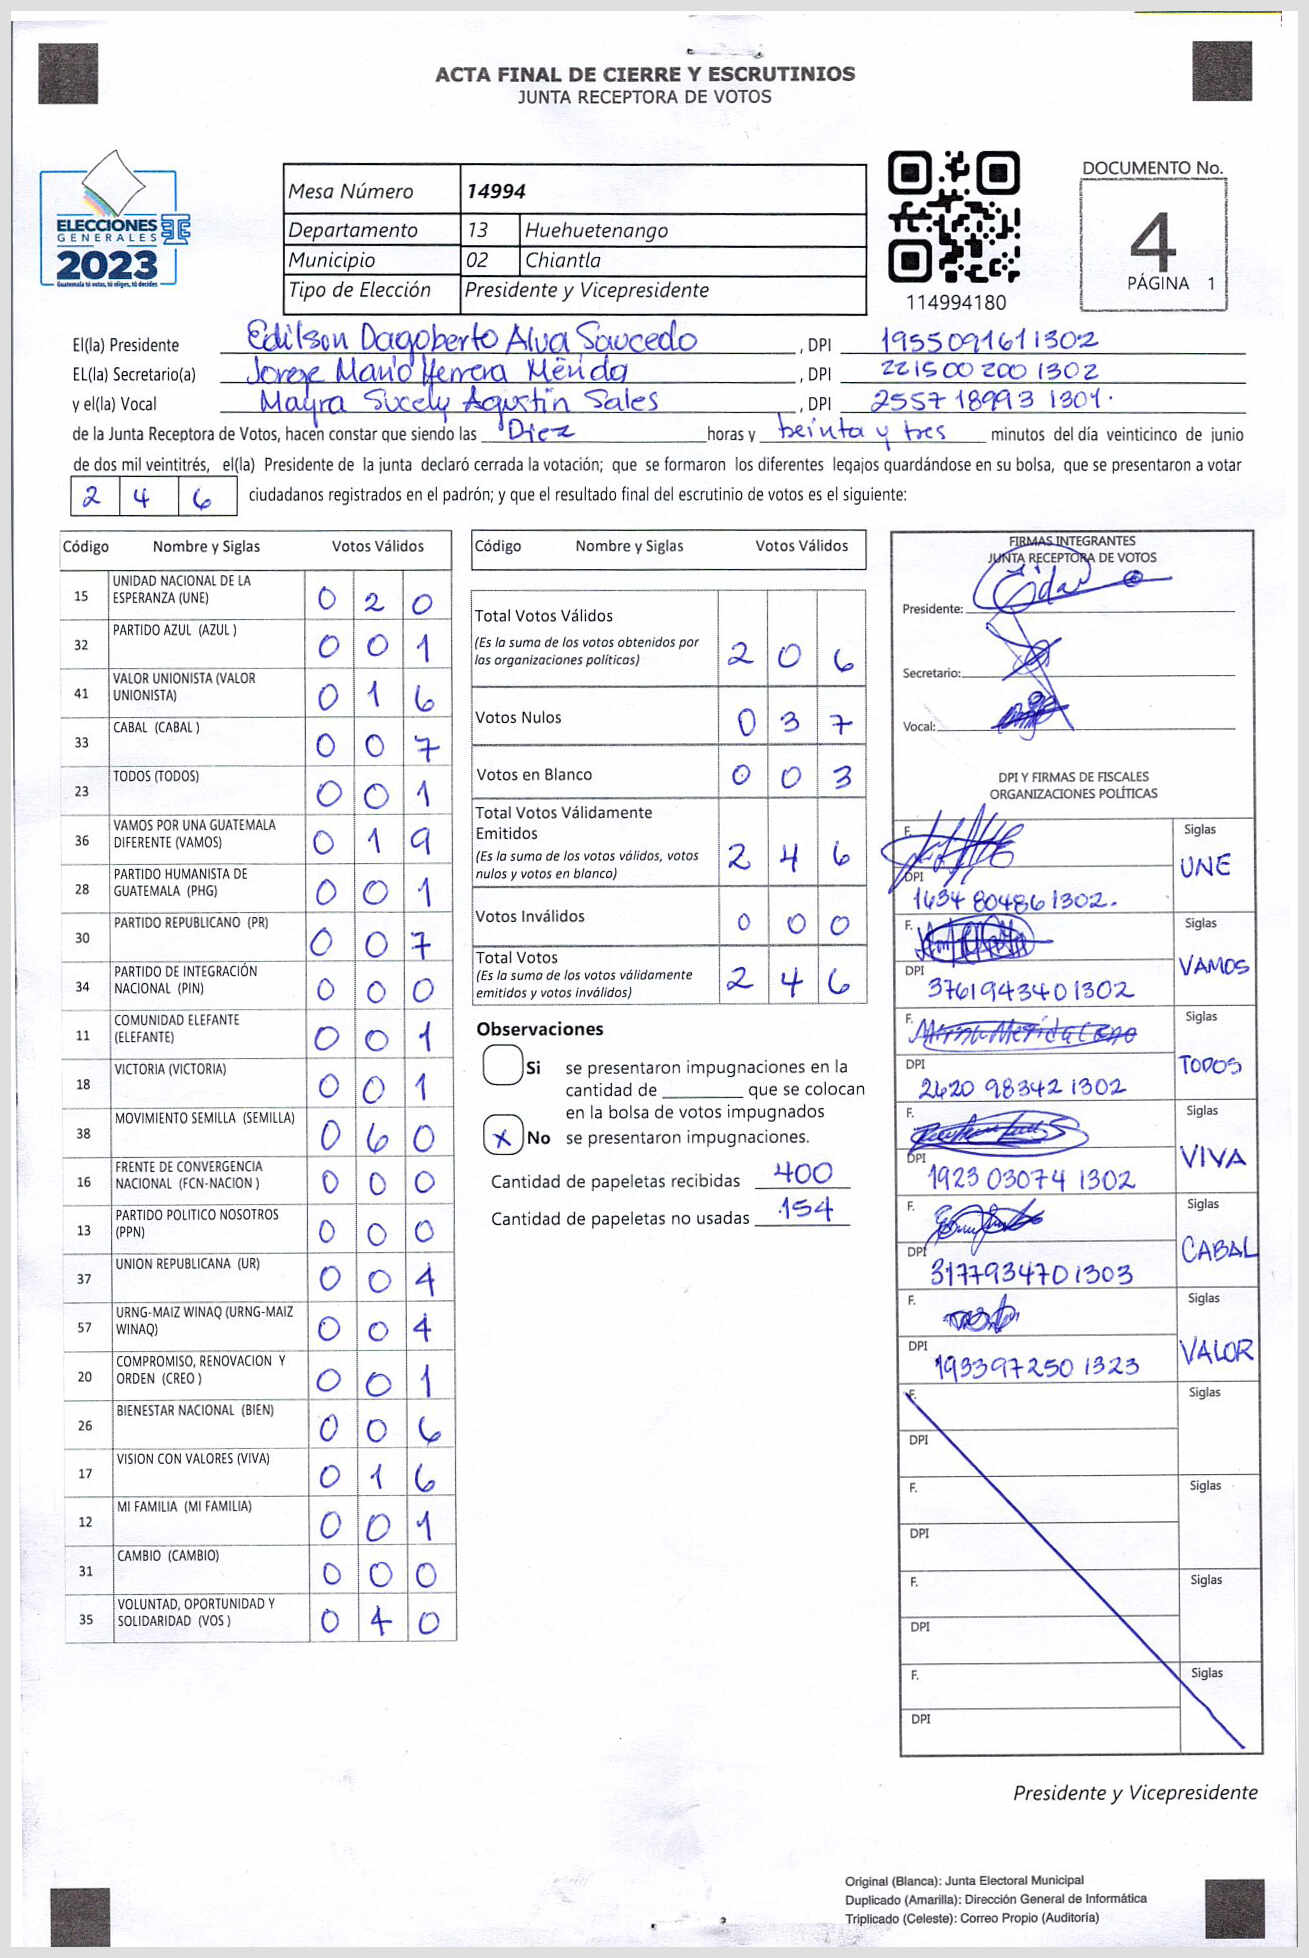 ACTA FINAL DE CIERRE Y ESCRUTINIOS
JUNTA RECEPTORA DE VOTOS
ELECCIONES
GENERALES
2023
Guatemala tú votas, tú eliges, tú decides
Mesa Número 14994
Departamento 13 Huehuetenango
Municipio 02 Chiantla
Tipo de Elección Presidente y Vicepresidente
114994180
DOCUMENTO No.
4
PÁGINA 1
El(la) Presidente Edilson Dagoberto Alva Saucedo, DPI 1955091611302
EL(la) Secretario(a) Jorge Mario Herrera Mérida, DPI 2215002001302
y el(la) Vocal Mayra Sucely Agustin Sales, DPI 2557189931301.
de la Junta Receptora de Votos, hacen constar que siendo las Diez horas y treinta y tres minutos del día veinticinco de junio
de dos mil veintitrés, el(la) Presidente de la junta declaró cerrada la votación; que se formaron los diferentes legajos guardándose en su bolsa, que se presentaron a votar
2 4 6 ciudadanos registrados en el padrón; y que el resultado final del escrutinio de votos es el siguiente:
Código Nombre y Siglas Votos Válidos
15 UNIDAD NACIONAL DE LA ESPERANZA (UNE) 0 2 0
32 PARTIDO AZUL (AZUL ) 0 0 1
41 VALOR UNIONISTA (VALOR UNIONISTA) 0 1 6
33 CABAL (CABAL ) 0 0 7
23 TODOS (TODOS) 0 0 1
36 VAMOS POR UNA GUATEMALA DIFERENTE (VAMOS) 0 1 9
28 PARTIDO HUMANISTA DE GUATEMALA (PHG) 0 0 1
30 PARTIDO REPUBLICANO (PR) 0 0 7
34 PARTIDO DE INTEGRACIÓN NACIONAL (PIN) 0 0 0
11 COMUNIDAD ELEFANTE (ELEFANTE) 0 0 1
18 VICTORIA (VICTORIA) 0 0 1
38 MOVIMIENTO SEMILLA (SEMILLA) 0 6 0
16 FRENTE DE CONVERGENCIA NACIONAL (FCN-NACION ) 0 0 0
13 PARTIDO POLITICO NOSOTROS (PPN) 0 0 0
37 UNION REPUBLICANA (UR) 0 0 4
57 URNG-MAIZ WINAQ (URNG-MAIZ WINAQ) 0 0 4
20 COMPROMISO, RENOVACION Y ORDEN (CREO ) 0 0 1
26 BIENESTAR NACIONAL (BIEN) 0 0 6
17 VISION CON VALORES (VIVA) 0 1 6
12 MI FAMILIA (MI FAMILIA) 0 0 1
31 CAMBIO (CAMBIO) 0 0 0
35 VOLUNTAD, OPORTUNIDAD Y SOLIDARIDAD (VOS ) 0 4 0
Código Nombre y Siglas Votos Válidos
Total Votos Válidos 2 0 6
(Es la suma de los votos obtenidos por
las organizaciones políticas)
Votos Nulos 0 3 7
Votos en Blanco 0 0 3
Total Votos Válidamente
Emitidos 2 4 6
(Es la suma de los votos válidos, votos
nulos y votos en blanco)
Votos Inválidos 0 0 0
Total Votos 2 4 6
(Es la suma de los votos válidamente
emitidos y votos inválidos)
Observaciones
Si se presentaron impugnaciones en la
cantidad de ________ que se colocan
en la bolsa de votos impugnados
X No se presentaron impugnaciones.
Cantidad de papeletas recibidas 400
Cantidad de papeletas no usadas 154
FIRMAS INTEGRANTES
JUNTA RECEPTORA DE VOTOS
Presidente:
Secretario:
Vocal:
DPI Y FIRMAS DE FISCALES
ORGANIZACIONES POLÍTICAS
F. Siglas
UNE
DPI
1634 80486 1302.
F. Siglas
VAMOS
DPI
3761943401302
F. Siglas
TODOS
DPI
2620 98342 1302
F. Siglas
VIVA
DPI
1923 03074 1302
F. Siglas
CABAL
DPI
3177934701303
F. Siglas
VALOR
DPI
1933972501323
F. Siglas
DPI
F. Siglas
DPI
F. Siglas
DPI
F. Siglas
DPI
Presidente y Vicepresidente
Original (Blanca): Junta Electoral Municipal
Duplicado (Amarilla): Dirección General de Informática
Triplicado (Celeste): Correo Propio (Auditoría)